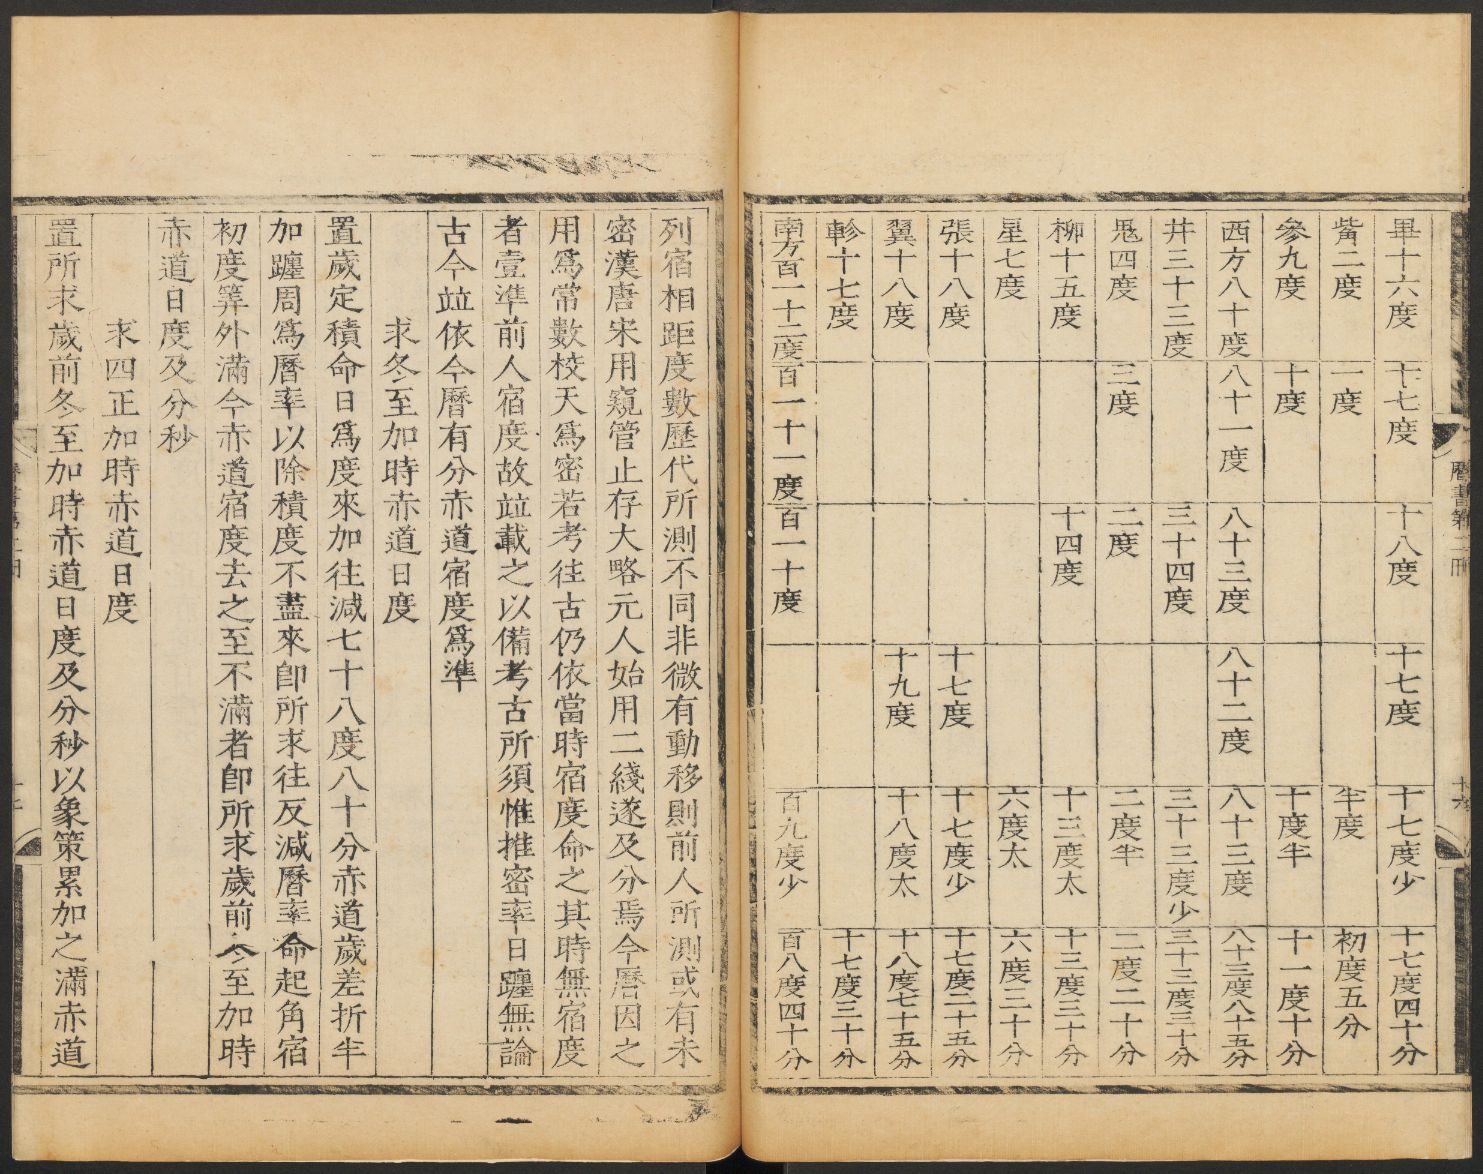 畢十六度 十七度 十八度 十七度 十七度少 十七度四十分
觜二度 一度 半度 初度五分
參九度 十度 十度半 十一度十分
西方八十度 八十一度 八十三度 八十二度 八十三度 八十三度八十五分
井三十三度 三十四度 三十三度少 三十三度三十分
鬼四度 三度 二度 二度半 二度二十分
柳十五度 十四度 十三度太 十三度三十分
星七度 六度太 六度三十分
張十八度 十七度 十七度少 十七度二十五分
翼十八度 十九度 十八度太 十八度七十五分
軫十七度 十七度三十分
南方百一十二度 百一十一度 百一十度 百九度少 百八度四十分
曆書第二冊
十六
列宿相距度數歷代所測不同非微有動移則前人所測或有未
密漢唐宋用窺管止存大略元人始用二綫遂及分焉今曆因之
用爲常數校天爲密若考往古仍依當時宿度命之其時無宿度
者壹準前人宿度故竝載之以備考古所須惟推密率日躔無論
古今竝依今曆有分赤道宿度爲準
求冬至加時赤道日度
置歲定積命日爲度來加往減七十八度八十分赤道歲差折半
加躔周爲曆率以除積度不盡來卽所求往反減曆率命起角宿
初度筭外滿今赤道宿度去之至不滿者卽所求歲前冬至加時
赤道日度及分秒
求四正加時赤道日度
置所求歲前冬至加時赤道日度及分秒以象策累加之滿赤道